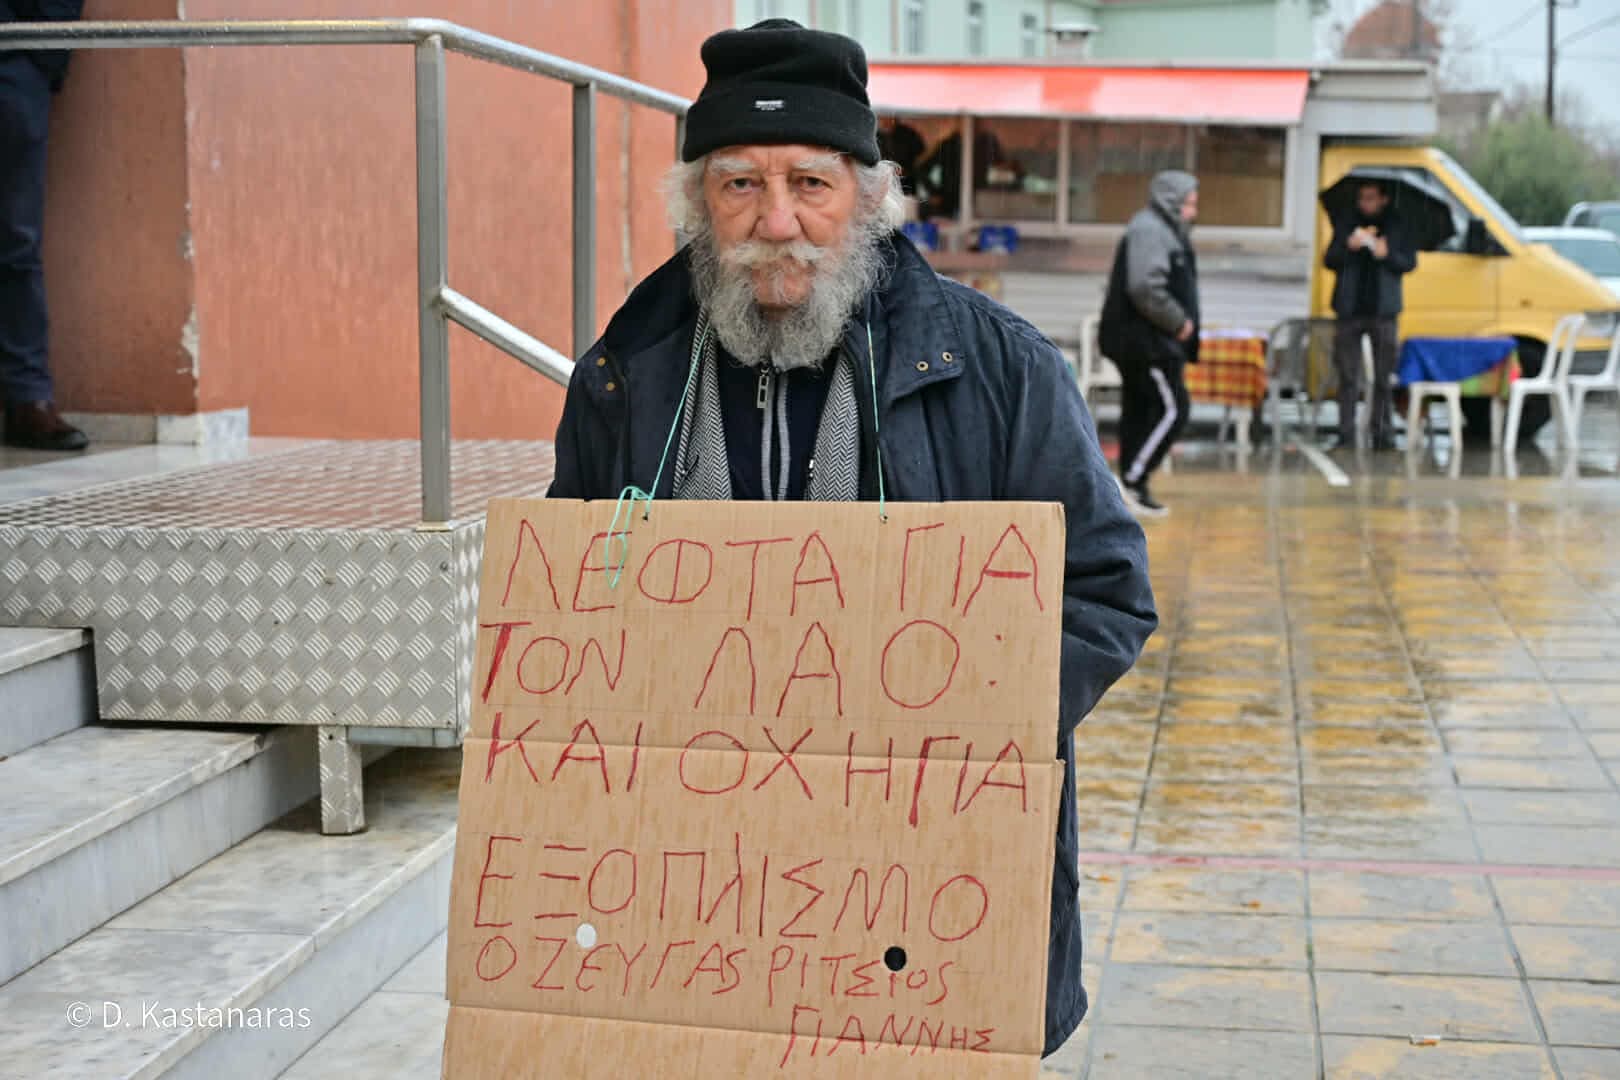 ΛΕΦΤΑ ΓΙΑ
ΤΟΝ ΛΑΟ:
ΚΑΙ ΟΧΗ ΓΙΑ
ΕΞΟΠλΙΣΜΟ
Ο ΖΕΥΓΑς ΡΙΤΣιος
ΓΙΑΝΝΗΣ
© D. Kastanaras